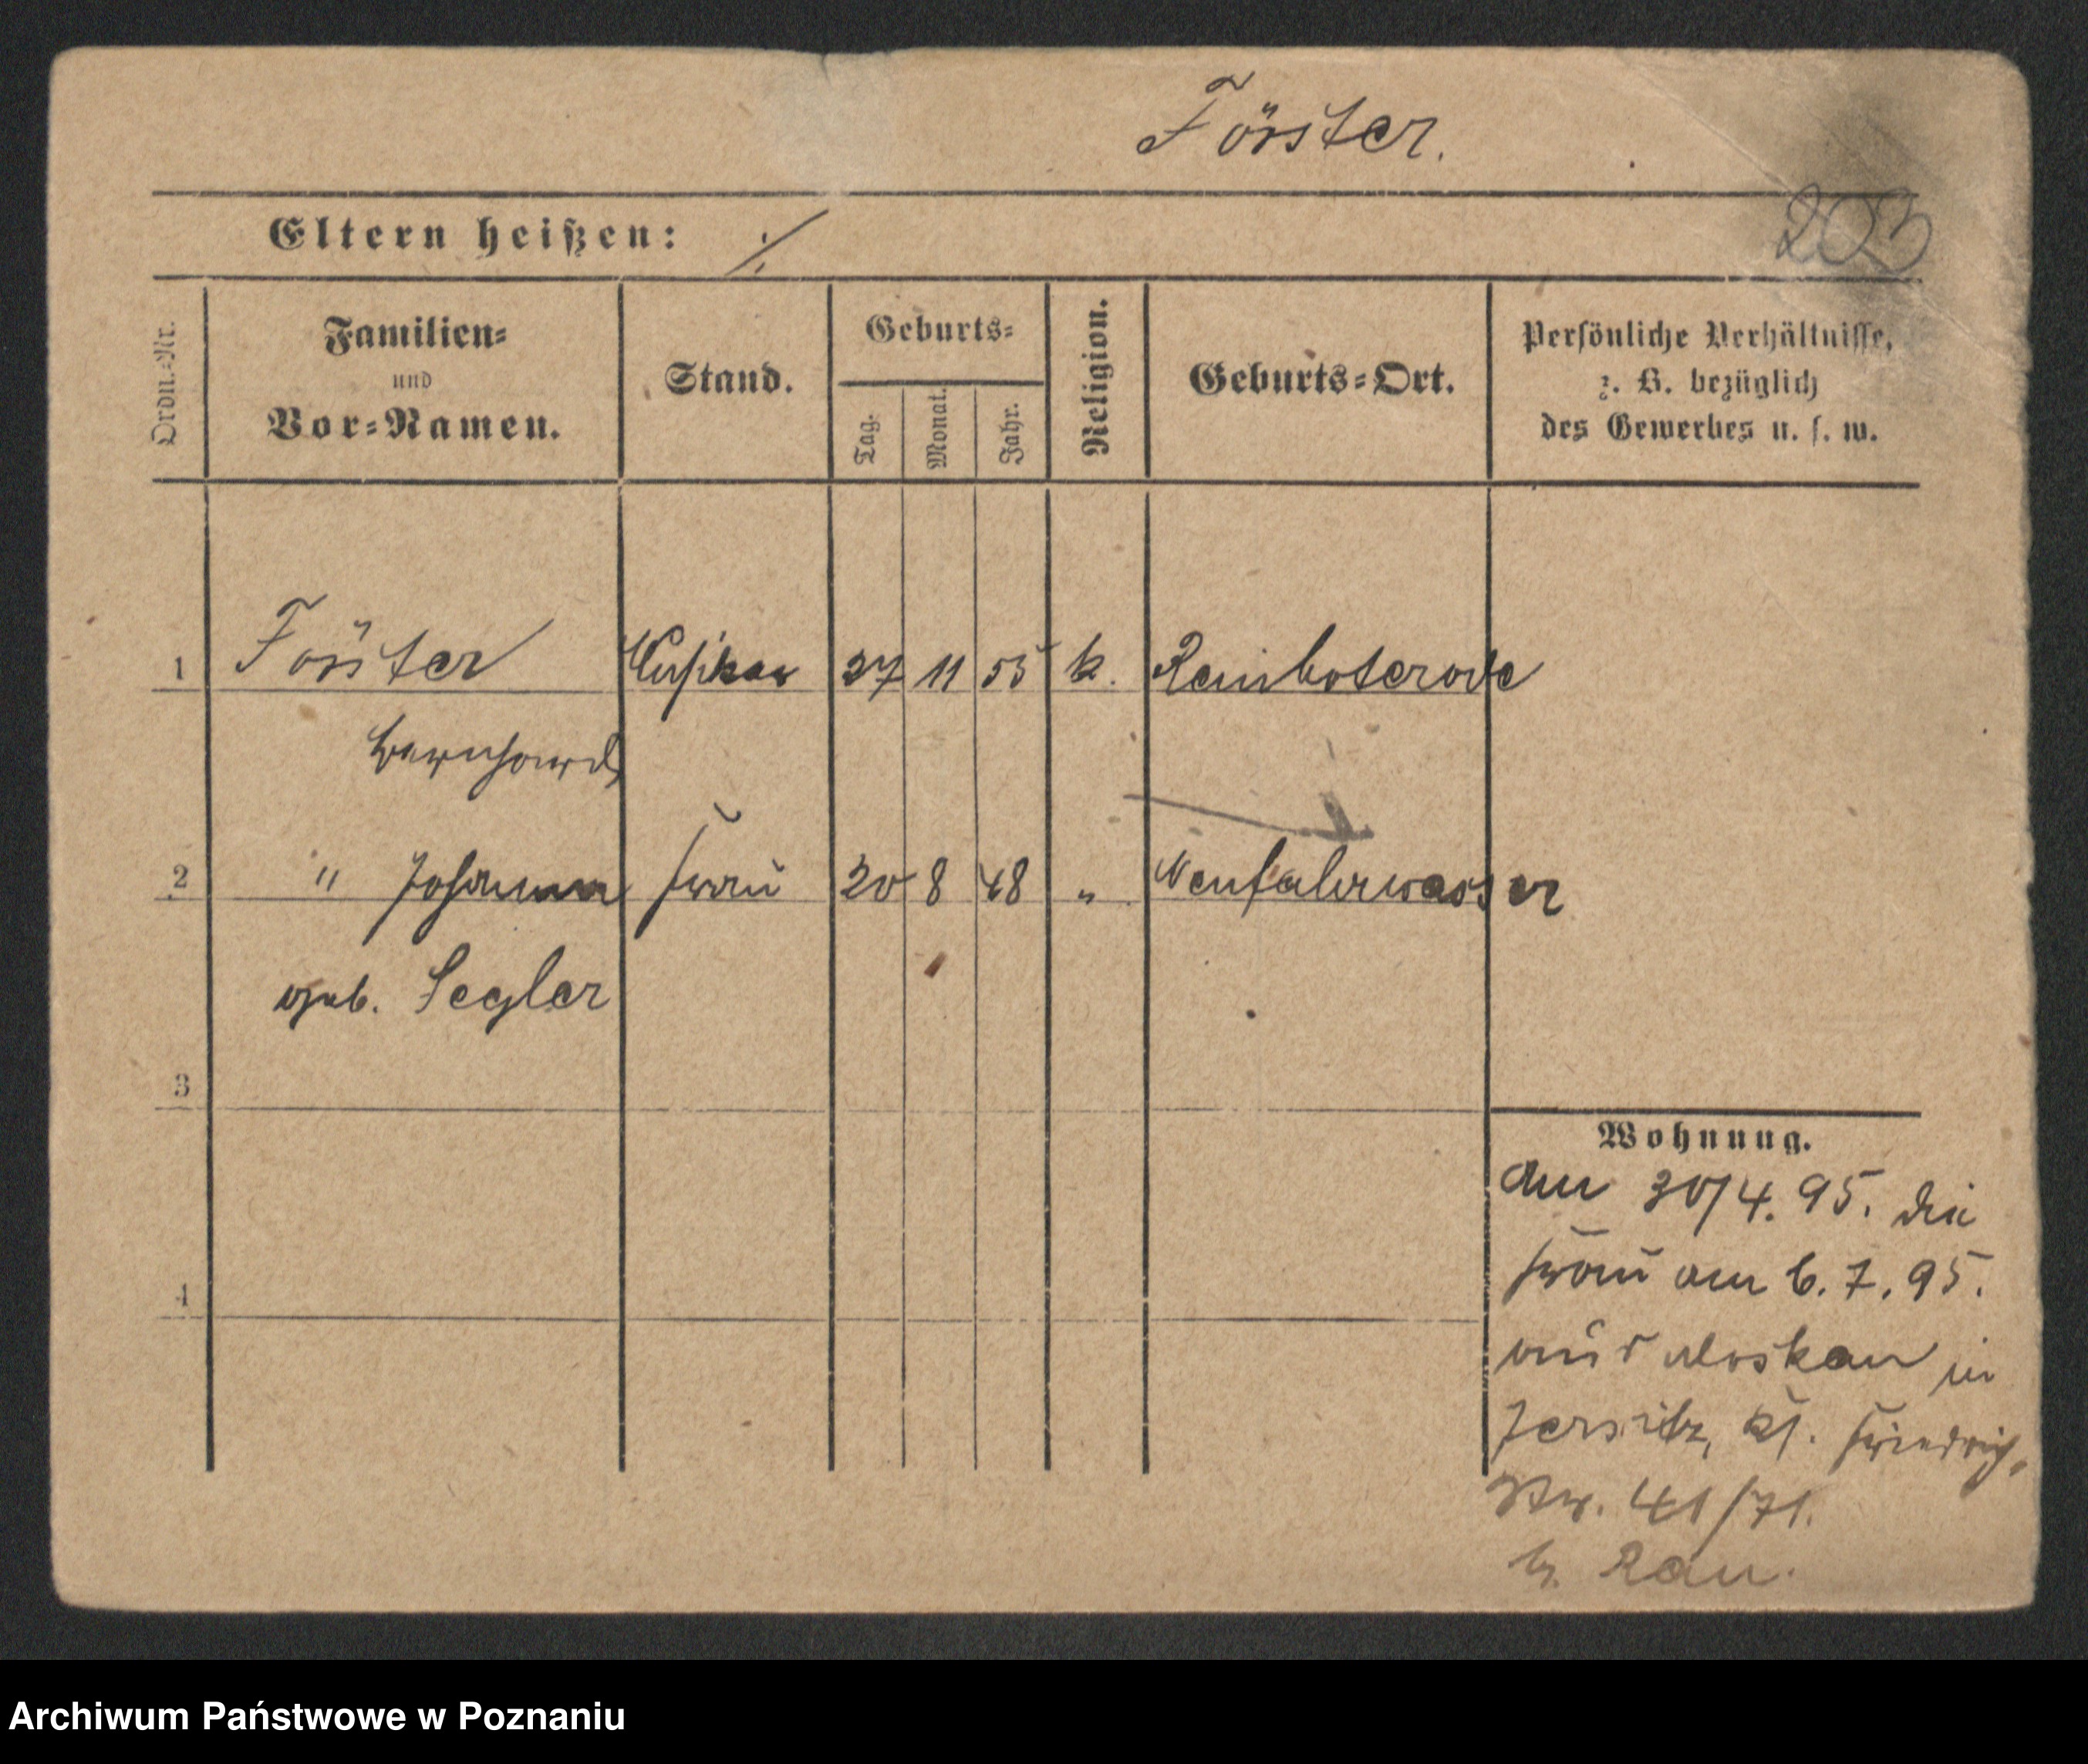 Förster.
203
Eltern heißen: ./.
Ordn.-Nr.
Familien-
und
Vor-Namen.
Stand.
Geburts-
Tag.
Monat.
Jahr.
Religion.
Geburts-Ort.
Persönliche Verhältnisse,
z. B. bezüglich
des Gewerbes u. s. w.
1 Förster Musiker 27 11 55 k. Reimboterode
Bernhard
2 " Johanna Frau 20 8 48 " Neufahrwasser
geb. Segler
3
4
Wohnung.
Am 30/4. 95. die
Frau am 6. 7. 95.
aus Moskau in
Jersitz, Kl. Friedrich-
Str. 41/71.
b. Rau.
Archiwum Państwowe w Poznaniu